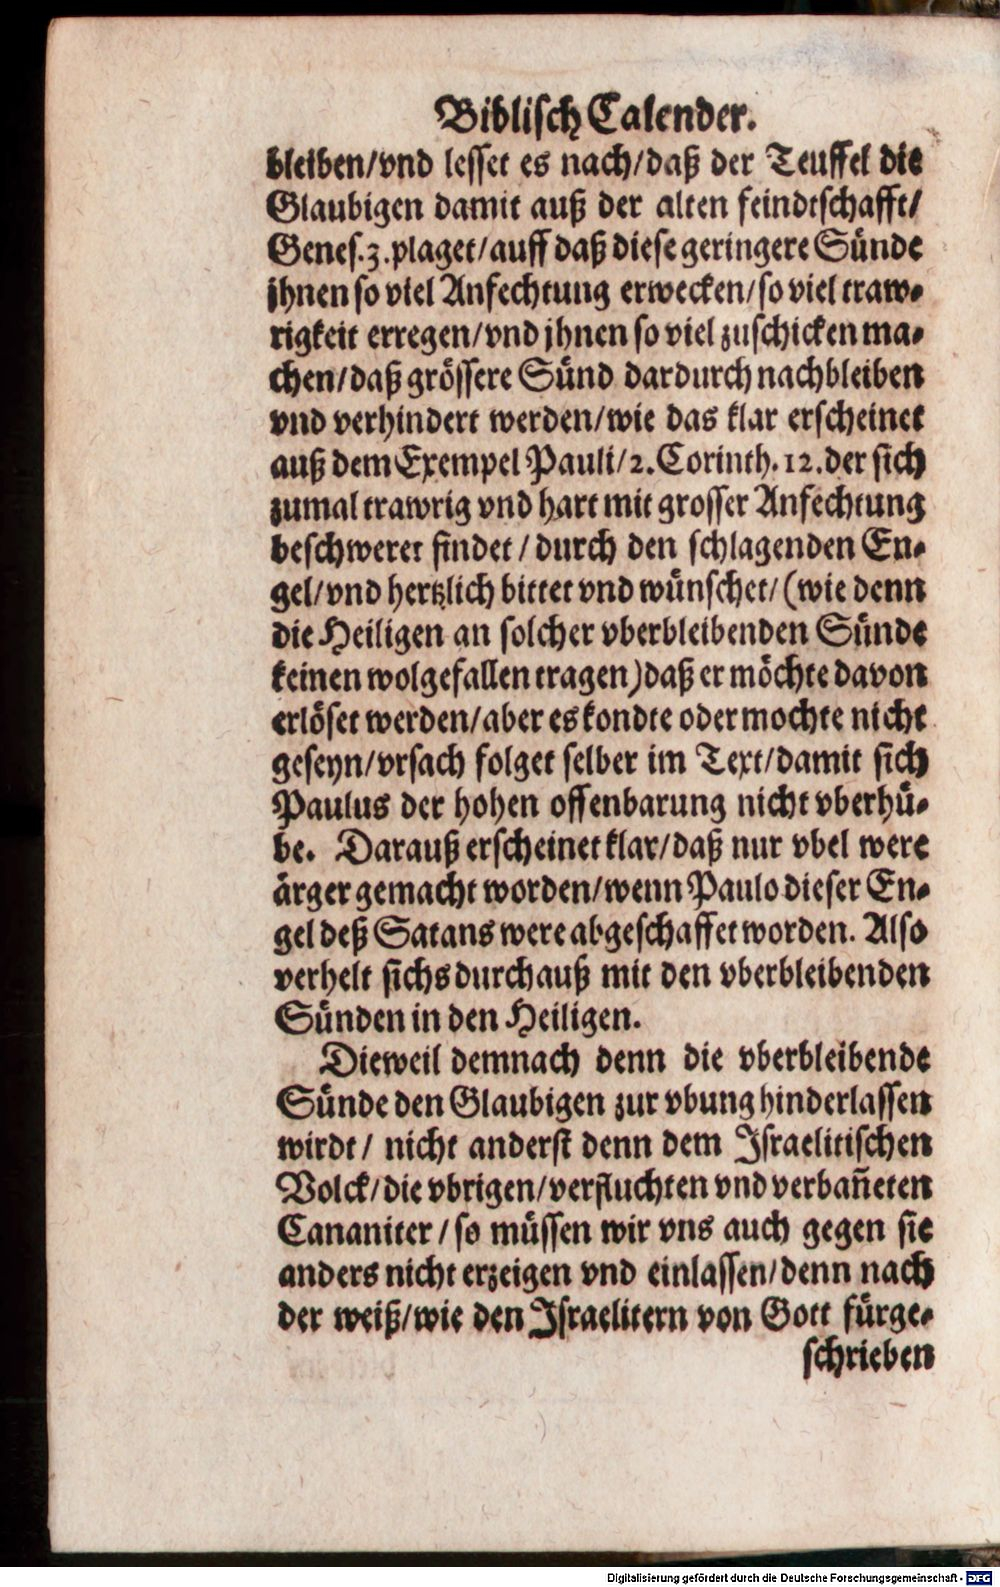 Biblisch Calender.
bleiben/vnd lesset es nach/daß der Teuffel die
Glaubigen damit auß der alten feindtschafft/
Genes.3.plaget/auff daß diese geringere Sünde
jhnen so viel Anfechtung erwecken/so viel traw-
rigkeit erregen/vnd jhnen so viel zuschicken ma-
chen/daß grössere Sünd dardurch nachbleiben
vnd verhindert werden/wie das klar erscheinet
auß dem Exempel Pauli/2.Corinth.12.der sich
zumal trawrig vnd hart mit grosser Anfechtung
beschweret findet/durch den schlagenden En-
gel/vnd hertzlich bittet vnd wünschet/(wie denn
die Heiligen an solcher vberbleibenden Sünde
keinen wolgefallen tragen)daß er möchte davon
erlöset werden/aber es kondte oder mochte nicht
geseyn/vrsach folget selber im Text/damit sich
Paulus der hohen offenbarung nicht vberhü-
be. Darauß erscheinet klar/daß nur vbel were
ärger gemacht worden/wenn Paulo dieser En-
gel deß Satans were abgeschaffet worden. Also
verhelt sichs durchauß mit den vberbleibenden
Sünden in den Heiligen.
Dieweil demnach denn die vberbleibende
Sünde den Glaubigen zur vbung hinderlassen
wirdt/ nicht anderst denn dem Israelitischen
Volck/die vbrigen/verfluchten vnd verbañeten
Cananiter/so müssen wir vns auch gegen sie
anders nicht erzeigen vnd einlassen/denn nach
der weiß/wie den Israelitern von Gott fürge-
schrieben
Digitalisierung gefördert durch die Deutsche Forschungsgemeinschaft - DFG